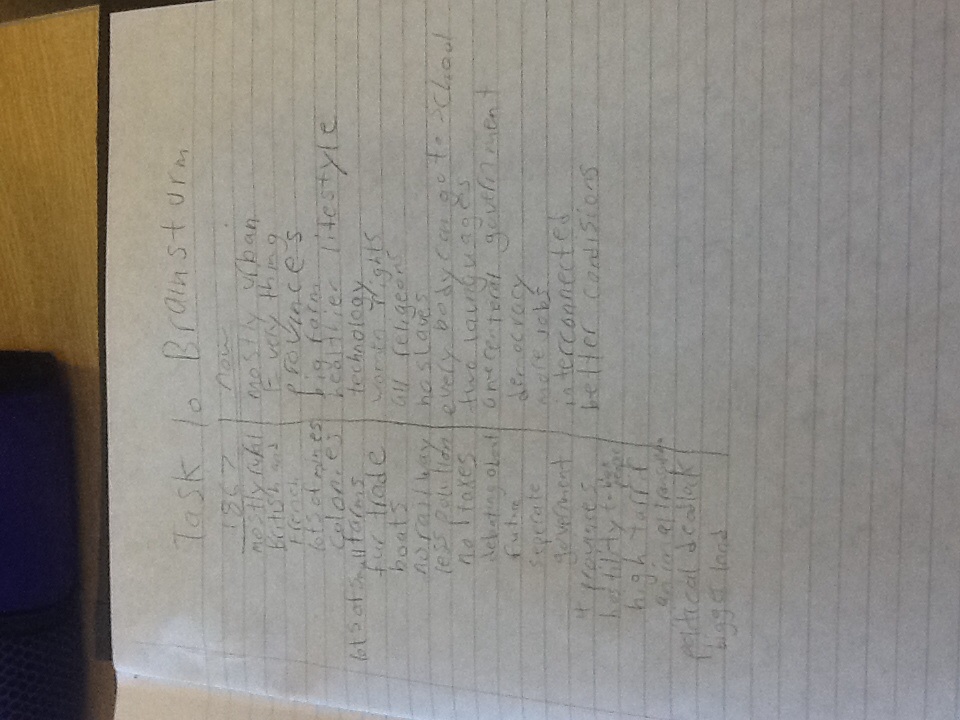 Task 10 Brainsturm
1867
mostly rural
British and
French
lots of mines
colonies
lots of small farms
fur trade
boats
no railway
less polution
no taxes
debating about
seperate
government
4 provinces
hostility to
high
political deadlak
bigger land
now
mostly urban
Every thing
provinces
big farm
healthier litestyle
technology
women rights
all religeons
no slaves
every body can go to school
two launguages
one central government
democracy
more jobs
interconnected
better condisions